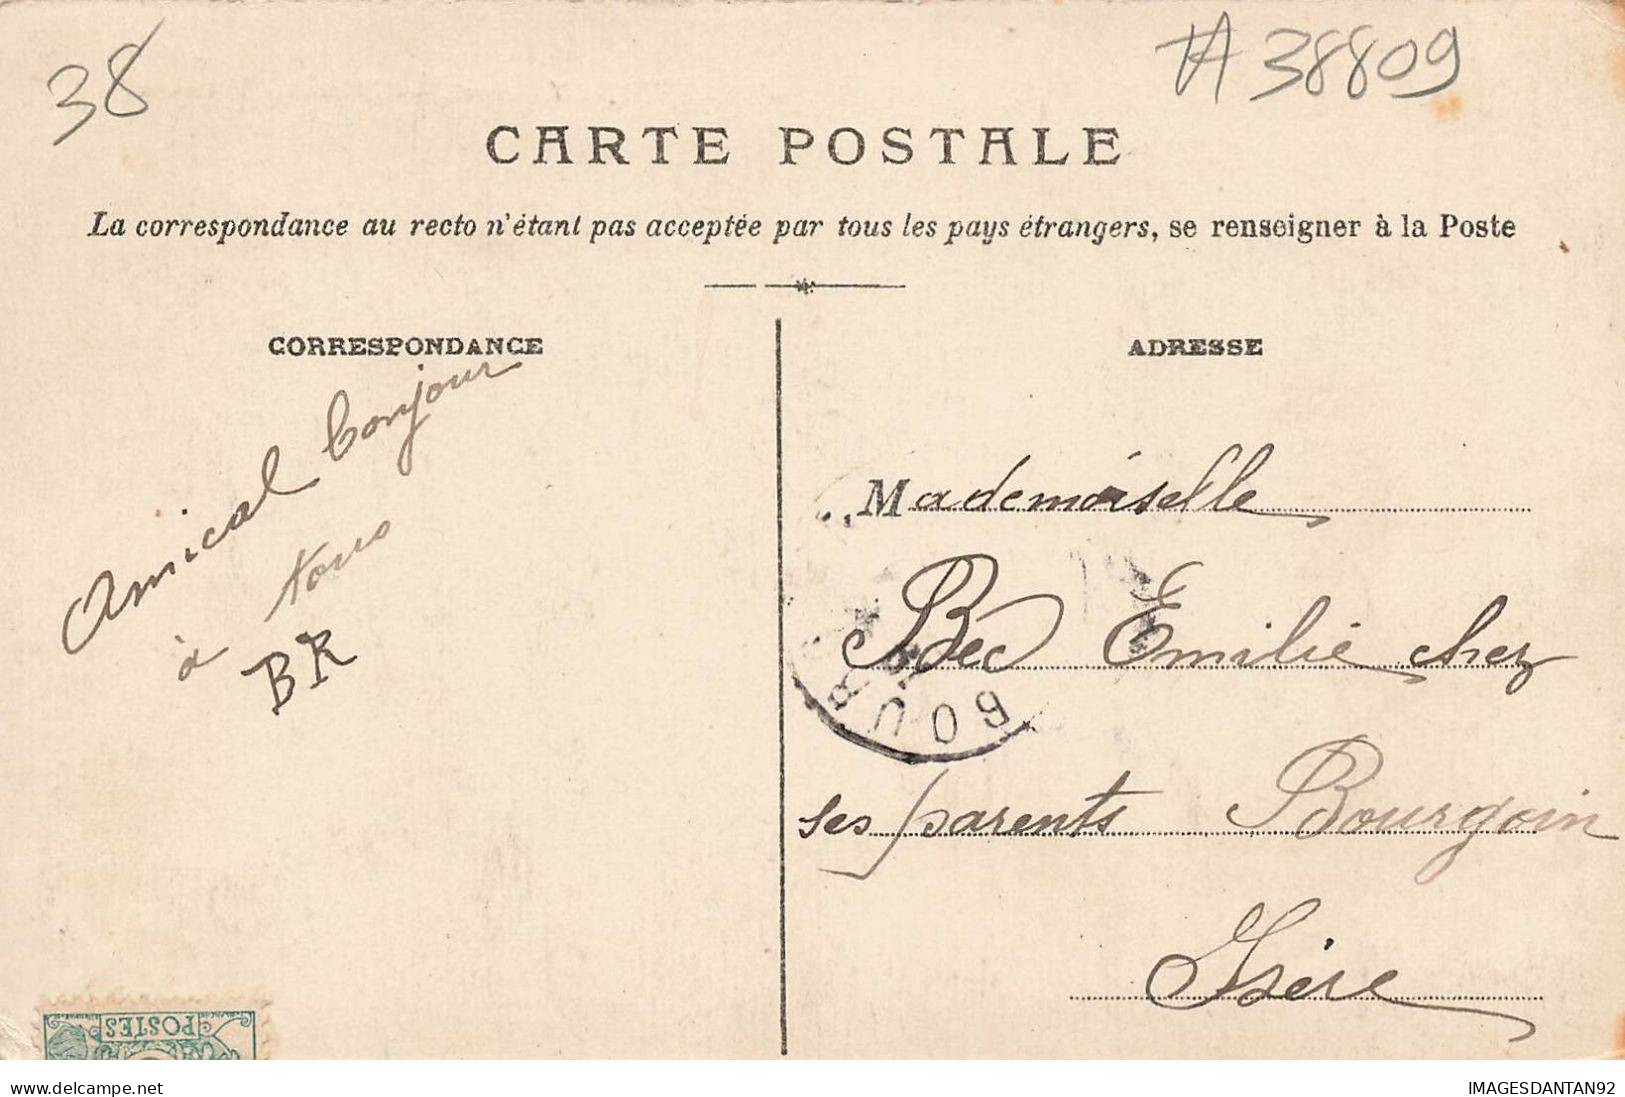 38
TA 38809
CARTE POSTALE
La correspondance au recto n'étant pas acceptée par tous les pays étrangers, se renseigner à la Poste
CORRESPONDANCE
Amical bonjour
à tous
BR
ADRESSE
Mademoiselle
Bec Emilie chez
ses parents Bourgoin
Isère
BOUR
POSTES
www.delcampe.net
IMAGESDANTAN92